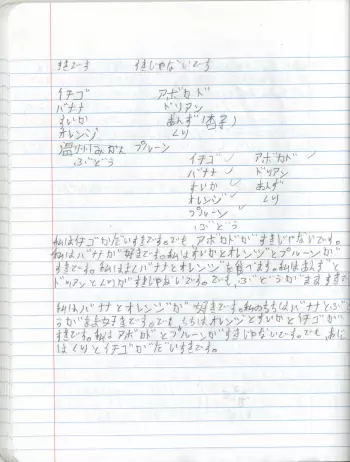 すきです　すきじゃないです
イチゴ　アボカド
バナナ　ドリアン
すいか　あんず(杏子)
オレンジ　くり
温州みかん　プルーン
ぶどう
イチゴ✓　アボカド✓
バナナ✓　ドリアン
すいか✓　あんず
オレンジ✓　くり
プルーン✓
ぶどう
私はイチゴがだいすきです。でも、アボカドがすきじゃないです。
私はバナナが好きです。私はすいかとオレンジとプルーンが
すきです。私はよくバナナとオレンジを食べます。私はあんずと
ドリアンとくりがすきじゃないです。でも、ぶどうがまあすきで
私はバナナとオレンジが好きです。私のちちはバナナとぶど
うがまあ好きです。でも、ちちはオレンジとすいかとイチゴが
すきです。私はアボカドとプルーンがすきじゃないです。でも、
はくりとイチゴがだいすきです。